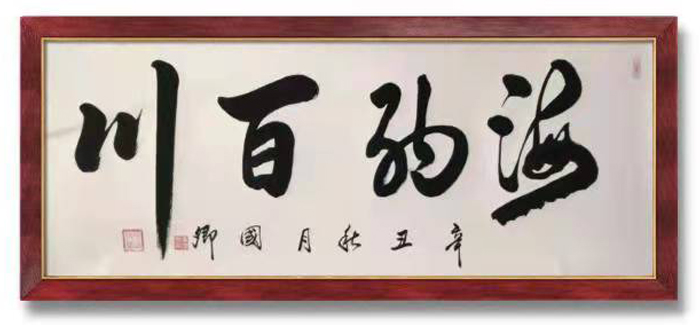 海纳百川
辛丑秋月國卿